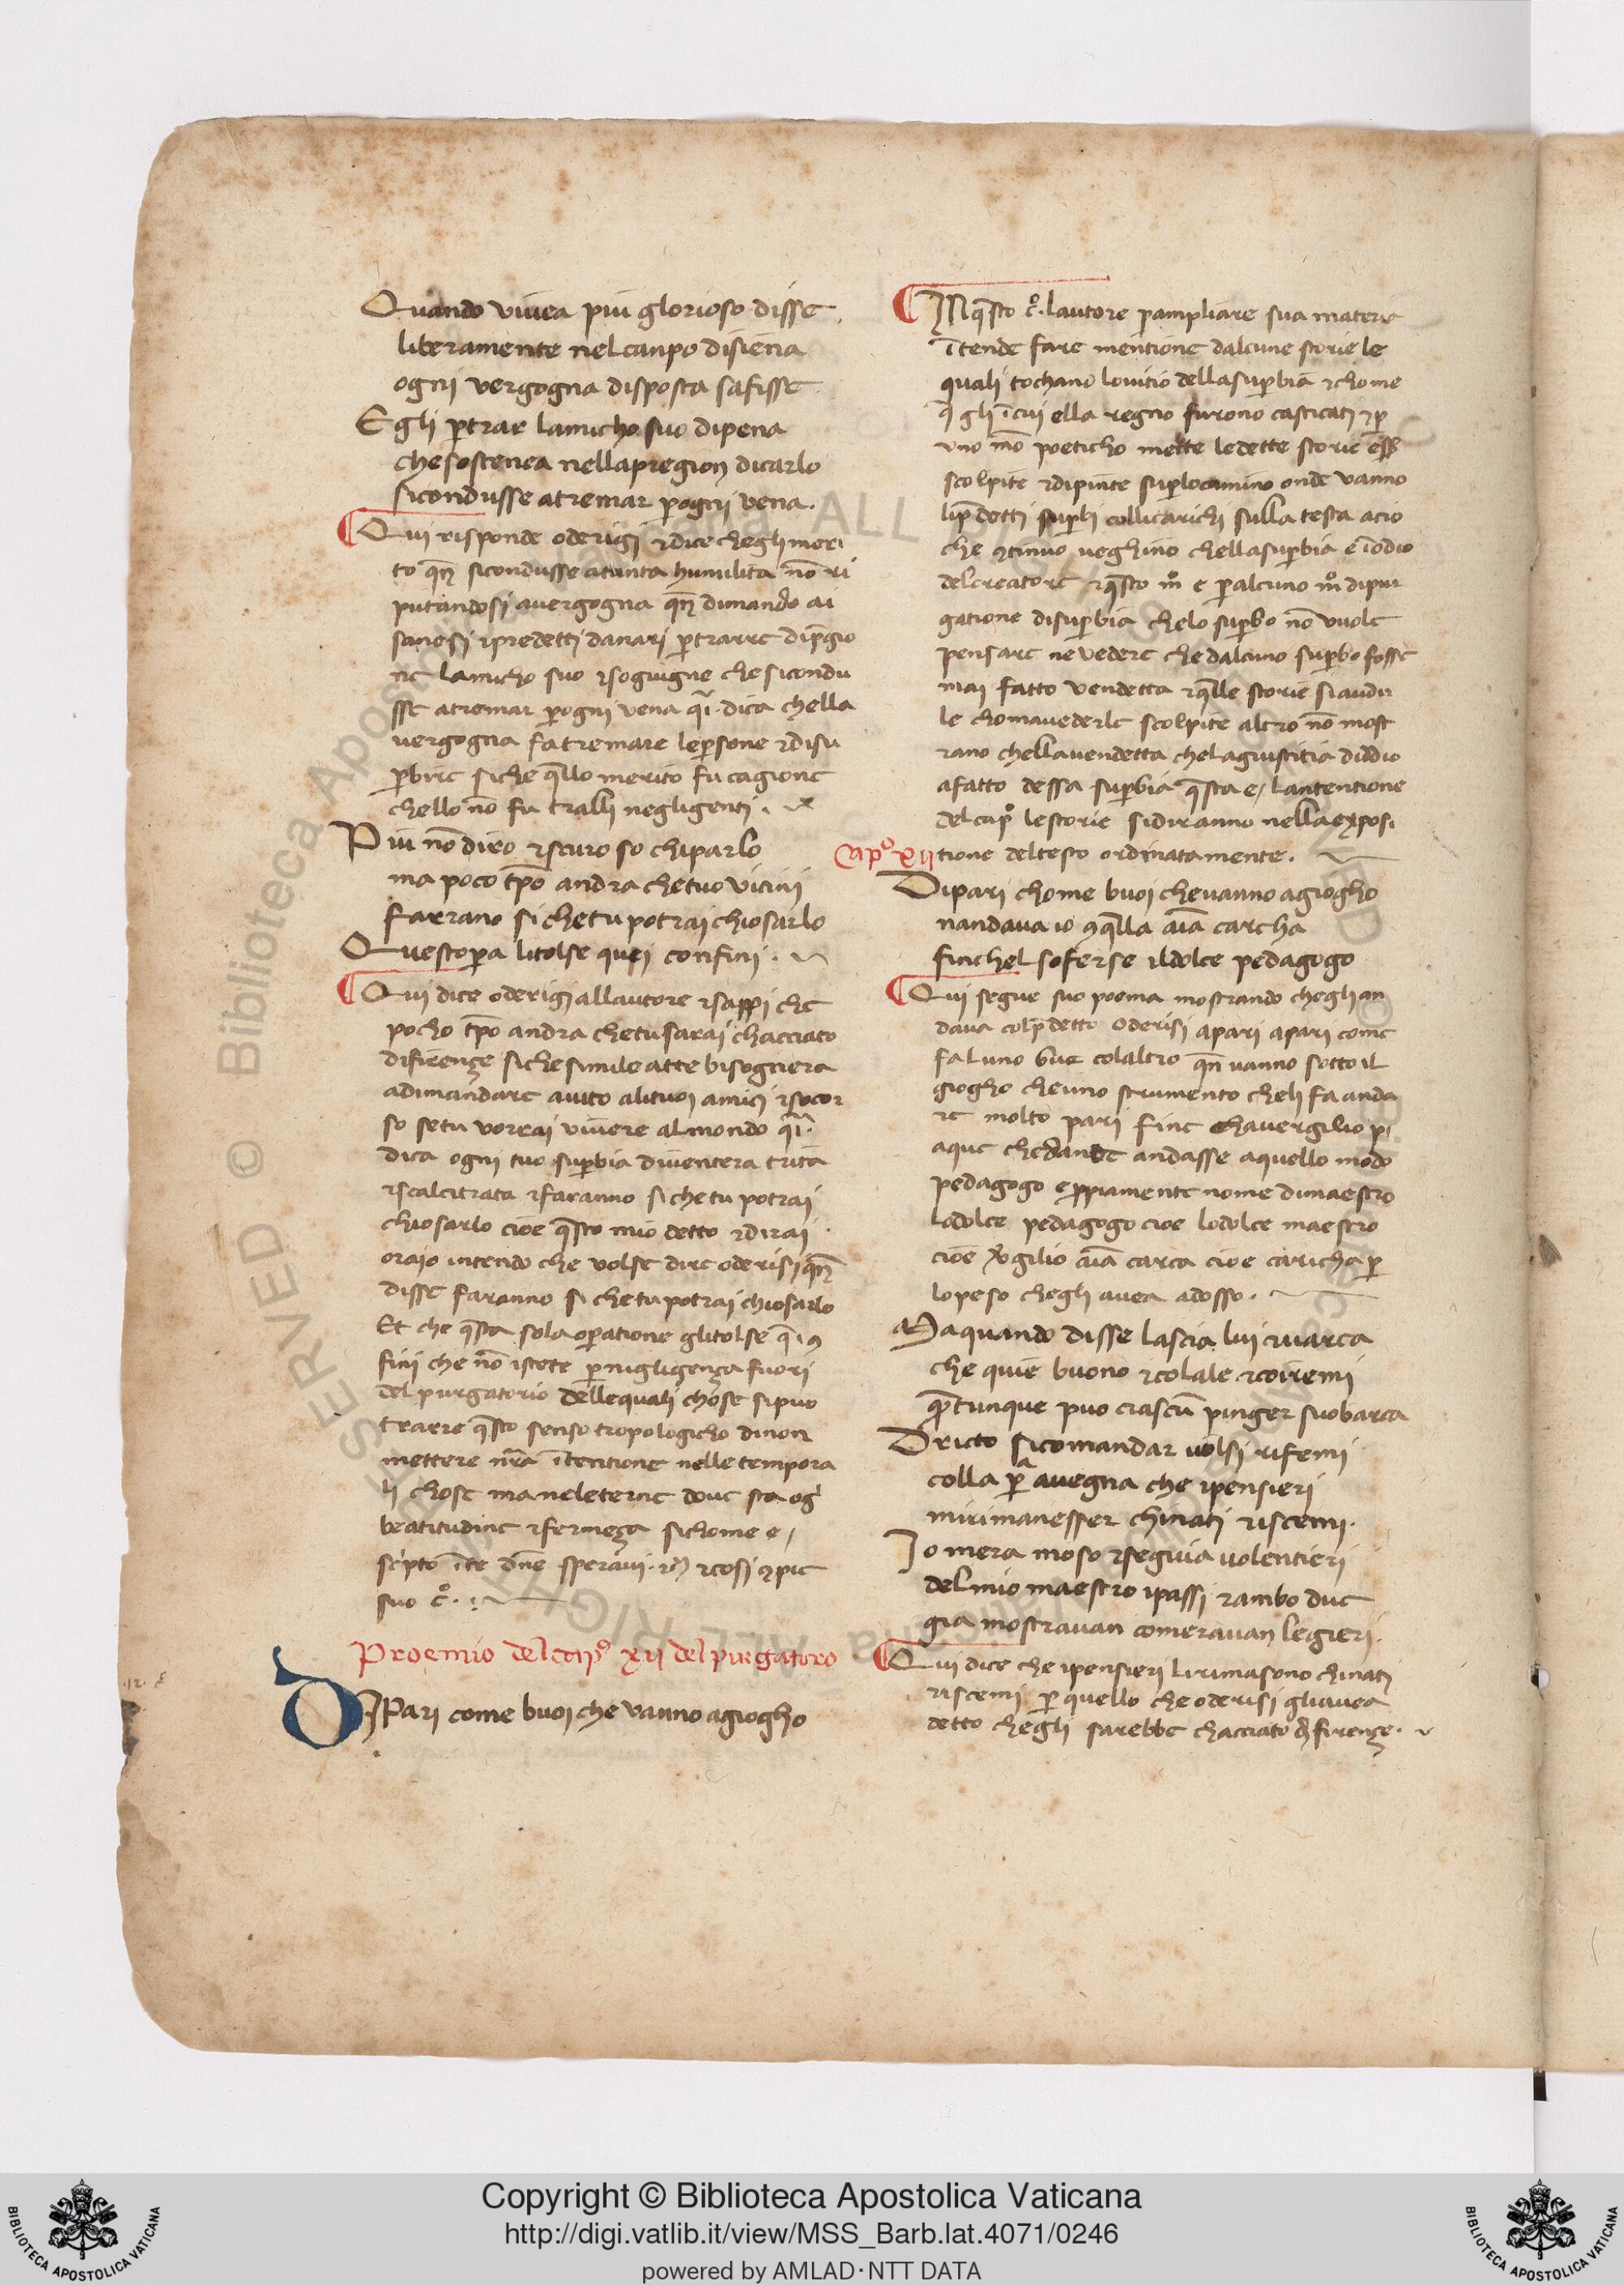 Quando vivea piu glorioso disse
liberamente nel canpo di siena
ognj vergogna disposta s afisse
Egli p̱ trar lamicho suo di pena
che sostenea nella pregion di carlo
si condusse a tremar p̱ ognj vena.
Qui risponde oderigj ⁊ dice chegli meri
to qn̄ si condusse a tanta humilita nō ri
putandosi a vergogna qn̄ dimando ai
sanesi i predettj danari p̱ trarre di p̱gio
ne lamicho suo ⁊ sogiugne che si condu
sse a tremar p̱ ognj vena q̄i. dica chella
vergogna fa tremare le p̱sone ⁊ di su
p̱birc siche q̄llo merito fu cagione
chello nō fu tralli negligenti.
Piu nō diro ⁊ scuro so chi parlo
ma poco tp̄o andra che tuo vicini
farrano si che tu potrai chiosarlo
Quest op̱a li tolse quej confini.
Qui dice oderigj all autore ⁊ sappi che
pocho tp̄o andra che tu sarai chacciato
di firenze siche simile atte bisognera
adimandare aiuto alituoj amicj ⁊ socor
so se tu vorrai vivere al mondo q̄i.
dica ogni tuo sup̱bia diventera trita
⁊ scalcitrata ⁊ faranno si che tu potrai
chiosarlo cioe q̄sto mio detto ⁊ dirai
ora io intendo che volse dire oderisi qn̄
disse faranno si che tu potrai chiosarlo
Et che q̄sta sola op̱atione gli tolse q̄i ꝯ
fini che nō istete p̱ nigligenza fuori
del purgatorio delle quali chose si puo
trarre q̄sto senso tropologicho di non
mettere nr̄a ītentione nelle tempora
li chose ma nel eterne dove sta og
beatitudine ⁊ fermeza sichome e
scripto īte dn̄e speravi. ⁊ cosi ꝯpie
suo c̊.
Proemio del cap̊ xij del purgatoro
DJ Pari come buoi che vanno a giogho
IN q̄sto c̊. lautore p̱ ampliare sua materia
ītende fare mentione dalcune storie le
quali tochano lo vitio della sup̱bia ⁊ chome
q̄ gli ī cui ella regno furono casticati ⁊ p̱
uno mō poeticho mette le dette storie ess̄
scolpite ⁊ dipinte sup̱ lo camino onde vanno
li p̱dettj sup̱bi colli carichi sulla testa acio
che ꝯtinuo veghino chella sup̱bia e ī odio
del creatore ⁊ q̄sto m̊ e p̱ alcuno m̊ di pur
gatione di sup̱bia che lo sup̱bo nō vuole
pensare ne vedere che dalcuno sup̱bo fosse
mai fatto vendetta ⁊ q̄lle storie si audir
le choma vederle scolpite altro nō most
rano chella vendetta che la giustitia diddio
a fatto dessa sup̱bia q̄sta e, lantentione
del cap̊ le storie si diranno nella exposi
Cap̊ xij tione del testo ordinatamente.
Di pari chome buoi che vanno a giogho
nandava io ꝯ q̄lla aīa carcha
finchel soferse il dolce pedagogo
Qui segue suo poema mostrando chegli an
dava col p̱detto oderisi a pari a pari come
fa luno bue colaltro qn̄ vanno sotto il
giogho che uno strumento cheli fa anda
re molto pari fine cha vergilio pi
aque che dante andasse a quello modo
pedagogo e ꝓpiamente nome di maestro
lo dolce pedagogo cioe lo dolce maestro
cioe v̄gilio aīa carca cioe caricha p̱
lo peso chegli avea adosso.
Ma quando disse lascia lui ⁊ varca
che quie buono ⁊ colale ⁊ coi remi
q̄tunque puo ciascū pinger suo barca
Dricto si comandar volsi rifemi
colla p̱ avegna che i pensieri
mi rimanesser chinatj ⁊ scemi.
Io mera moso ⁊ seguia volentieri
del mio maestro i passi ⁊ ambo due
gia mostravan comeravan legieri.
Qui dice che i pensieri li rimasono chinatj
⁊ scemi p̱ quello che oderisi gli avea
detto chegli sarebbe chacciato di firenze.
Copyright © Biblioteca Apostolica Vaticana
http://digi.vatlib.it/view/MSS_Barb.lat.4071/0246
powered by AMLAD·NTT DATA
BIBLIOTECA APOSTOLICA VATICANA
BIBLIOTECA APOSTOLICA VATICANA